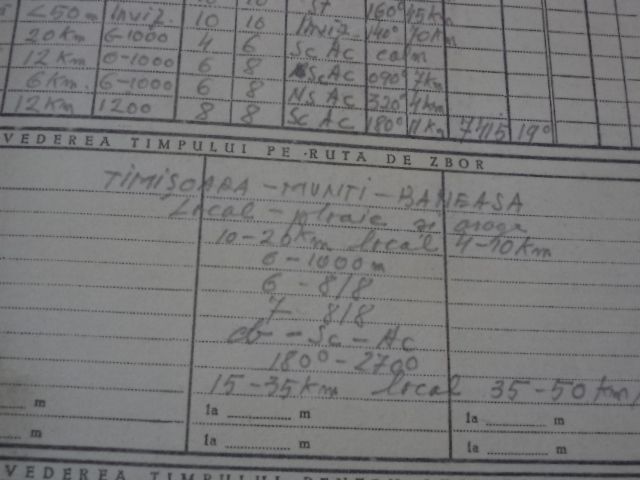 <50m Inviz. 10 10 St 160° 15km
20km 6-1000 4 6 Sc Ac calm
12km 6-1000 6 8 NsScAc 090° 7km
6km. 6-1000 6 8 NS AC 320° 4km
12km 1200 8 8 Sc Ac 180° 11km 7415 19°
VEDEREA TIMPULUI PE RUTA DE ZBOR
TIMIȘOARA - MUNTI - BANEASA
Local - ploaie și
10-20km local 4-10km
6-1000m
6 - 8/8
7 - 8/8
cb - Sc - Ac
180° - 270°
15-35km local 35-50km/
m la m la m
m la m la m
VEDEREA TIMPULUI